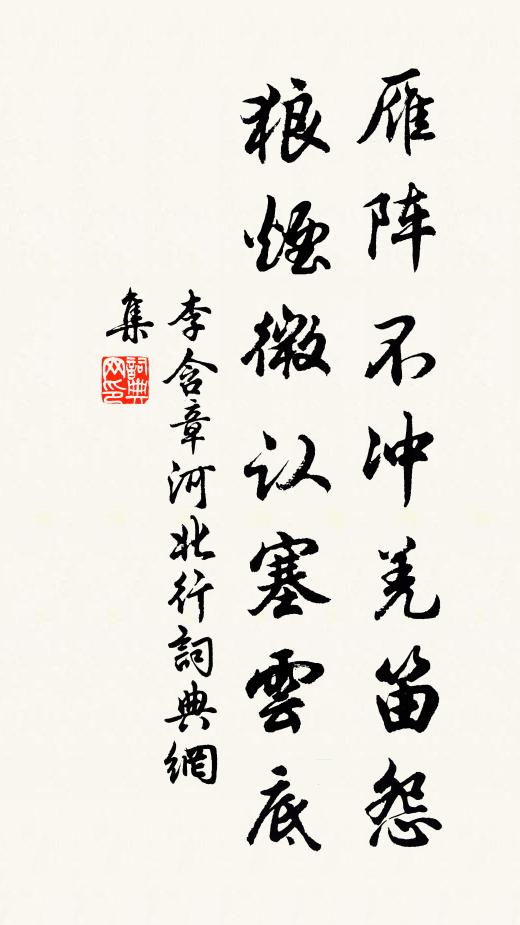 雁阵不冲羌笛怨
狼煙微认塞雲底
李含章河北行詞典網
集
詞典
网印